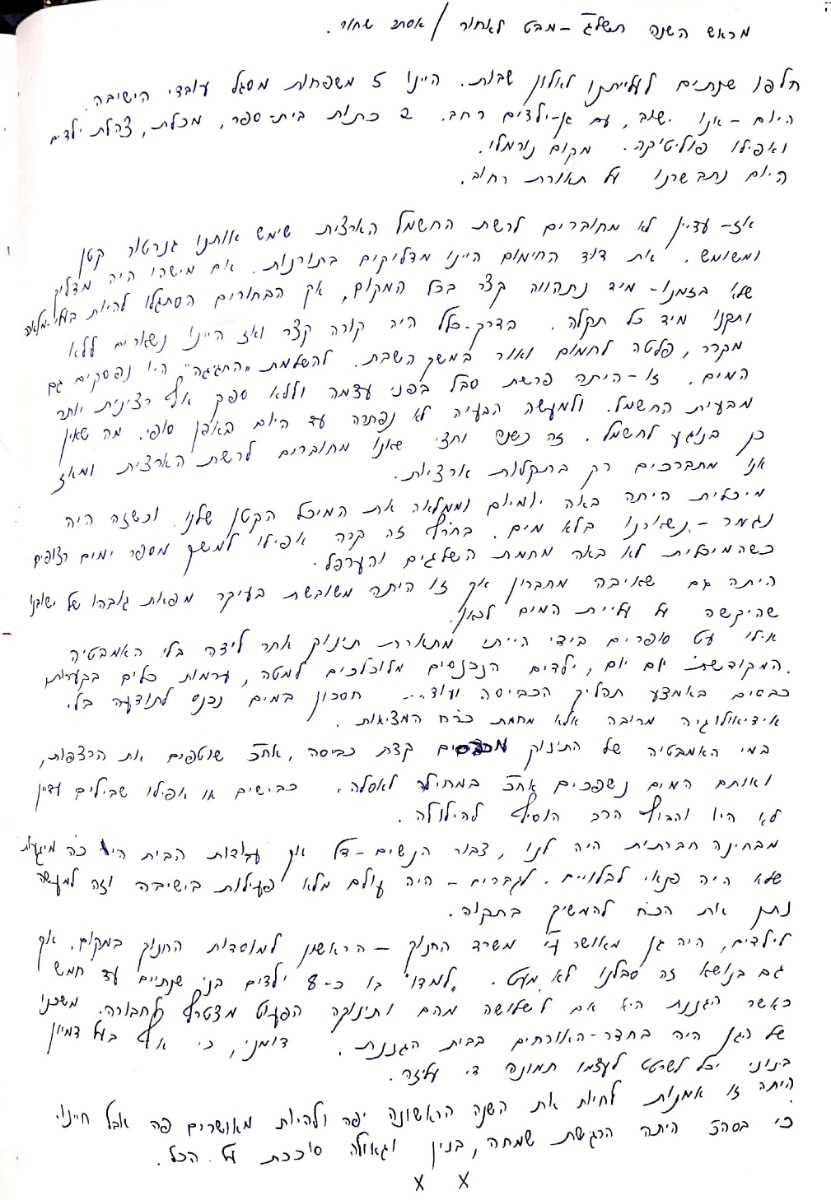 מראש השנה תשל"ג - מבט לאחור / אסתר שחור.
חלפו שנתים לעלייתנו לאלון שבות. היינו 5 משפחות מסגל עובדי הישיבה.
היום - אנו ישוב, עם גן-ילדים רחב. 2 כתות בית-ספר, מכלת, צהלת ילדים
ואפילו פוליטיקה. מקום נורמלי.
היום נתבשרנו על תאורת רחוב.
אז- עדיין לא מחוברים לרשת החשמל הארצית שימש אותנו גנרטור קטן
ומשומש. את דוד החימום היינו מדליקים בתורנות. אם מישהו היה מדליק
שלא בזמנו- מיד נתהווה קצר בכל המקום, אך הבחורים הסתגלו להיות בעלי-מלאכה
ותקנו מיד כל תקלה. בדרך-כלל היה קורה קצר ואז היינו נשארים ללא
מקרר, פלטה לחמום ואור במשך השבת. להשלמת "החגיגה" היו נפסקים גם
המים. זו - היתה פרשת סבל בפני עצמה וללא ספק אף רצינית יותר
מבעית החשמל. ולמעשה הבעיה לא נפתרה עד היום באופן סופי. מה שאין
כן בנוגע לחשמל. זה כשנה וחצי שאנו מחוברים לרשת הארצית ומאז
אנו מתברכים רק בתקלות ארציות.
מיכלית היתה באה יומיום וממלאה את המיכל הקטן שלנו. וכשזה היה
נגמר - נשארנו בלא מים. בחורף זה קרה אפילו למשך מספר ימים רצופים
כשהמיכלית לא באה מחמת השלגים והערפל.
היתה גם שאיבה מחברון אך זו היתה משובשת בעיקר מפאת גובהו של ישובנו
שהיקשה על עליית המים לכאן.
אילו עט סופרים בידי הייתי מתארת תינוק אחר לידה בלי האמבטיה
המקודשת יום יום, ילדים הנכנסים מלוכלכים למטה, ערמות כלים בקערות,
כבסים באמצע תהליך הכביסה ועוד... חסכון במים נכנס לתודעה בלי
אידיאולוגיה מרובה אלא מחמת כורח המציאות.
במי האמבטיה של התינוק מכבסים קצת כביסה, אח"כ שוטפים את הרצפות,
ואותם המים נשפכים אח"כ במחילה לאסלה. כבישים או אפילו שבילים עדין
לא היו והבוץ הרב הוסיף להילולה.
מבחינה חברתית היה לנו, צבור הנשים - דל אך עבודות הבית היו כה מיגעות
שלא היה פנאי לבלויים. לגברים - היה עולם מלא פעילות בישיבה וזה למעשה
נתן את הכח להמשיך בתקוה.
לילדים, היה גן מאושר ע"י משרד החנוך - הראשון למוסדות החנוך במקום. אך
גם בנושא זה סבלנו לא מעט. למדו בו כ-8 ילדים בני שנתיים עד חמש
כאשר הגננת היא אם לשלושה מהם ותינוקה הפעוט מצטרף לחבורה. משכנו
של הגן היה בחדר-האורחים בבית הגננת. דומני, כי אף בעל דמיון
בינוני יכל לשרטט לעצמו תמונה די עליזה.
היתה זו אמנות לחיות את השנה הראשונה יפה ולהיות מאושרים פה אבל חיינו
כי בסה"כ היתה הרגשת שמחה, בנין וגאולה סוככת על הכל.
x x